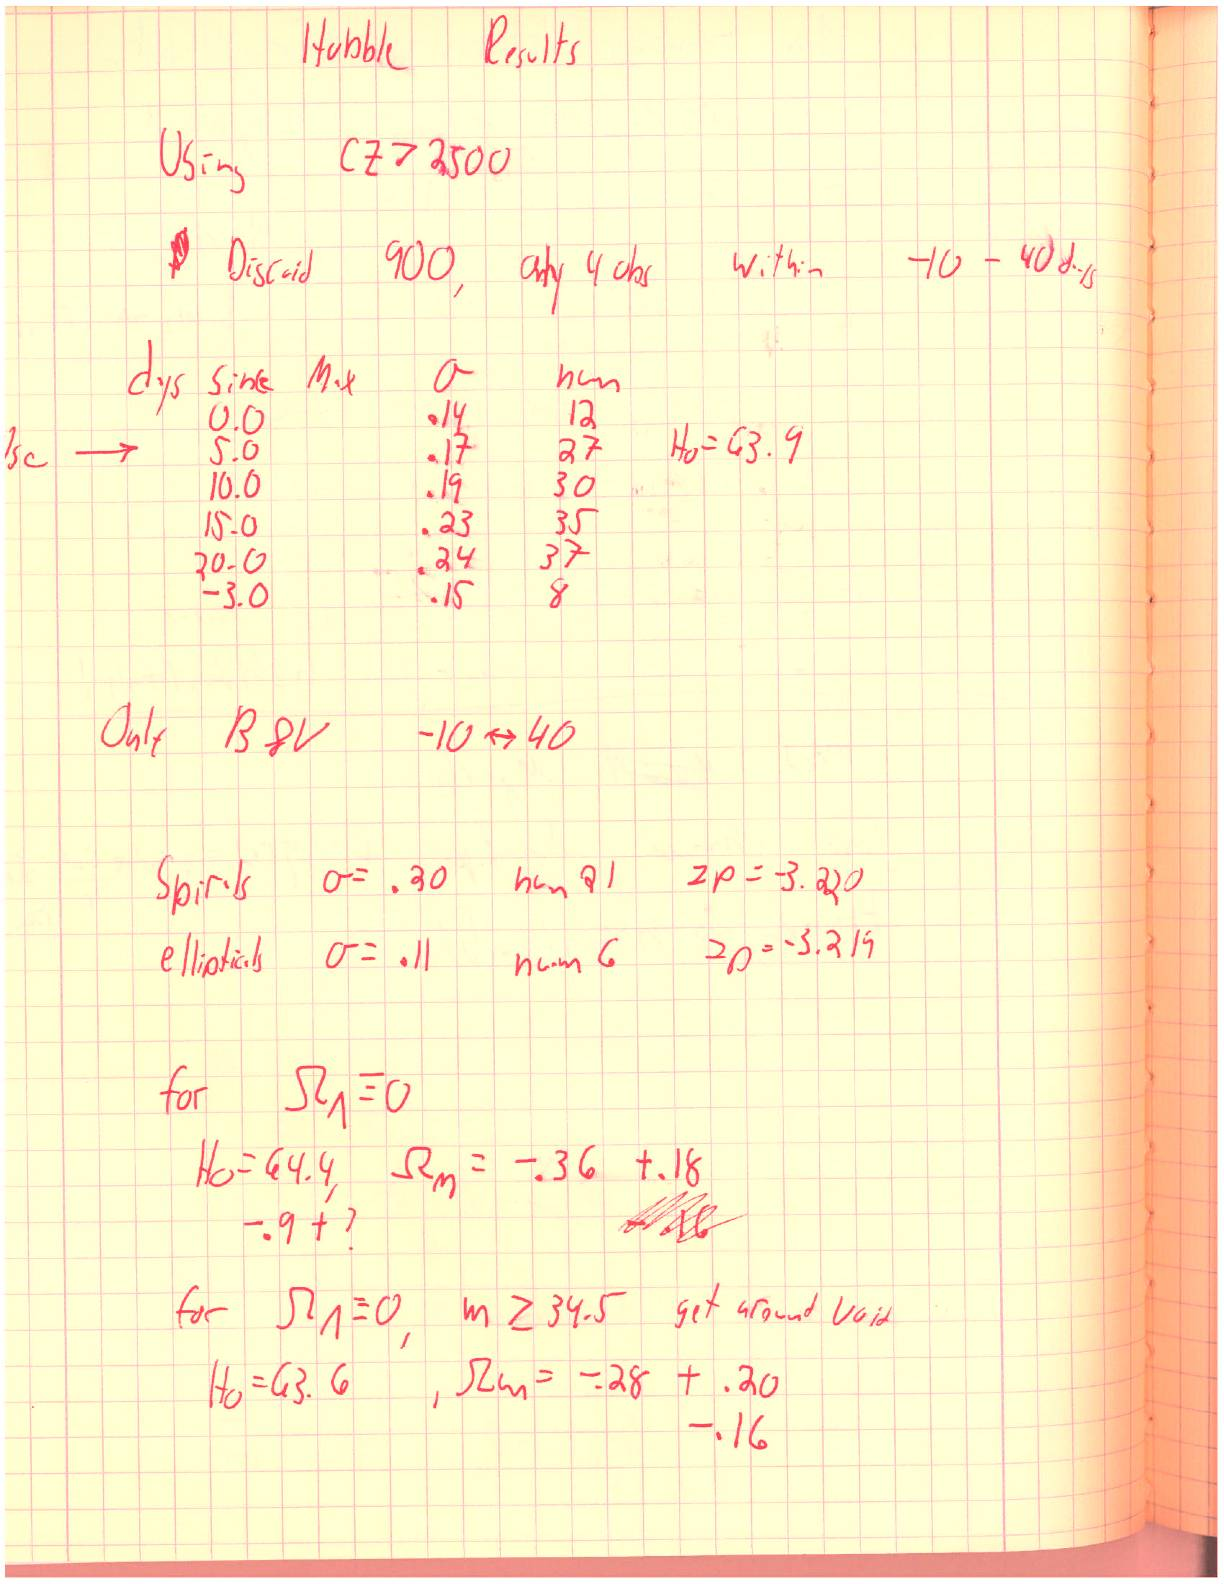 Hubble Results
Using CZ > 2500
Discard 900, only 4 obs within -10 - 40 days
days since Max σ num
0.0 .14 12
→ 5.0 .17 27 H0 = 63.9
10.0 .19 30
15.0 .23 35
20.0 .24 37
-3.0 .15 8
Only B & V -10 ↔ 40
Spirals σ = .20 num 21 zp = -3.220
ellipticals σ = .11 num 6 zp = -3.219
for ΩΛ ≡ 0
H0 = 64.4, Ωm = -.36 +.18
-.9 + ?
for ΩΛ ≡ 0, m ≥ 34.5 get around void
H0 = 63.6 , Ωm = -.28 + .20
-.16